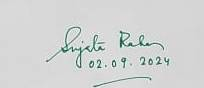 Sujata Raha
02.09.2024